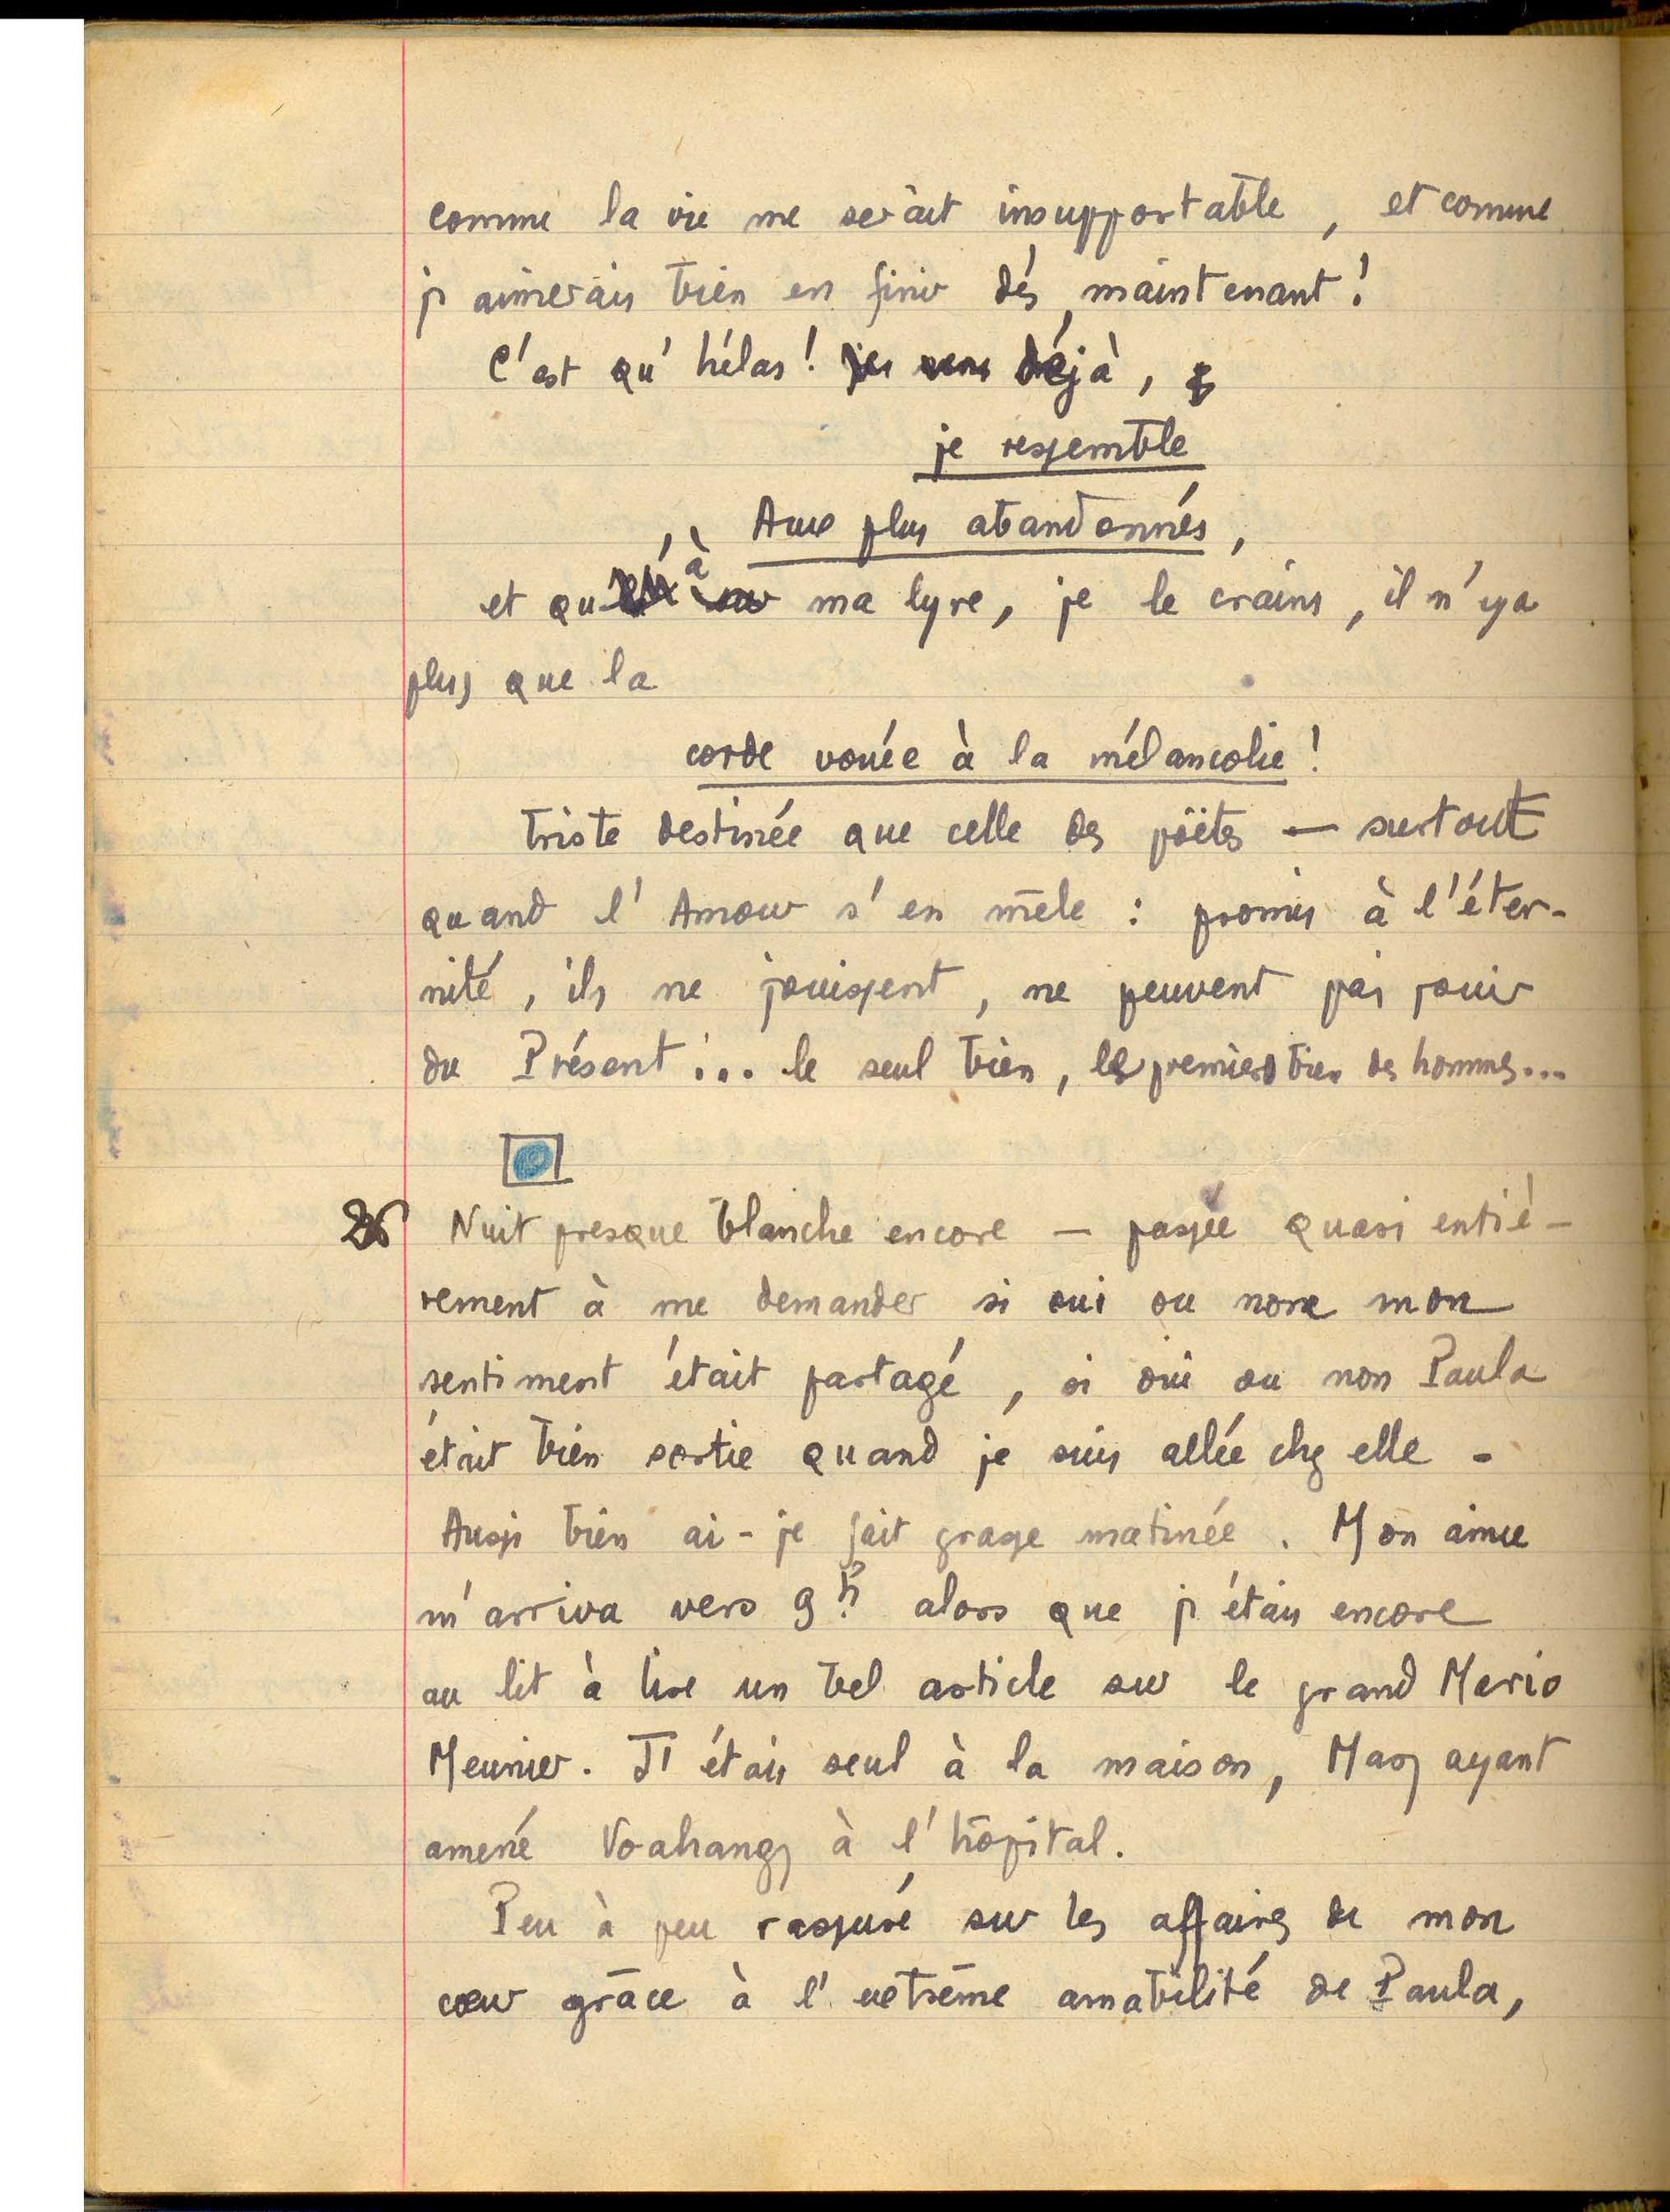 comme la vie me serait insupportable, et comme
j'aimerais bien en finir dès maintenant !
C'est qu'hélas ! je sens déjà,
je ressemble
Aux plus abandonnés,
et qu'à ma lyre, je le crains, il n'y a
plus que la
corde vouée à la mélancolie !
Triste destinée que celle des poëtes — surtout
quand l'Amour s'en mêle : promis à l'éter-
nité, ils ne jouissent, ne peuvent pas jouir
du Présent !... le seul bien, le premier bien des hommes...
26 Nuit presque blanche encore — passée quasi entiè-
rement à me demander si oui ou non mon
sentiment était partagé, si oui ou non Paula
était bien sortie quand je suis allée chez elle -
Aussi bien ai-je fait grasse matinée. Mon aimée
m'arriva vers 9h alors que j'étais encore
au lit à lire un bel article sur le grand Mario
Meunier. J'étais seul à la maison, Mary ayant
amené Voahangy à l'hôpital.
Peu à peu rassuré sur les affaires de mon
cœur grâce à l'extrême amabilité de Paula,